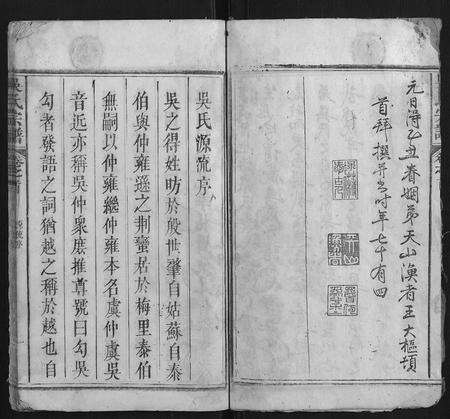 元日得乙丑春姻弟天山漁者王大樞頓
首拜撰并書時年七十有四
吳氏源流序
吳之得姓昉於殷世肇自姑蘇自泰
伯與仲雍遜之荆蠻居於梅里泰伯
無嗣以仲雍繼仲雍本名虞仲虞吳
音近亦稱吳仲衆庶推尊號曰勾吳
勾者發語之詞猶越之稱於越也自
吳氏宗譜